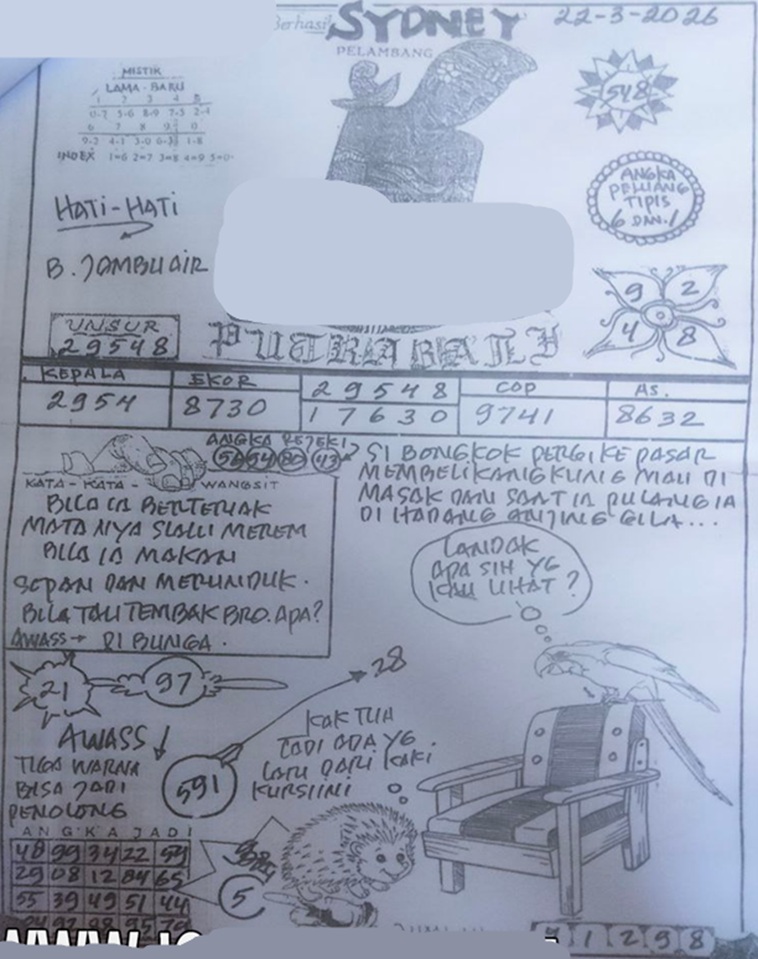 Berhasil SYDNEY 22-3-2026
PELAMBANG
MISTIK
LAMA - BARU
1 2 3 4 5
0-7 5-6 8-9 7-5 2-4
6 7 8 9 0
9-2 4-1 3-0 1-8
INDEX 1=6 2=7 3=8 4=9 5=0
548
ANGKA
PELUANG
TIPIS
6 DAN 1
HATI-HATI
B. JAMBU AIR
9 2
4 8
UNSUR
29548
PUTRA BALI
KEPALA EKOR 29548 COP AS.
2954 8730 17630 9741 8632
ANGKA REJEKI
56 54 80 43
KATA - KATA - WANGSIT
SI BONGKOK PERGI KE PASAR
MEMBELI KANGKUNG MAU DI
MASAK DAN SAAT IA PULANG IA
DI HADANG ANJING GILA...
BILA IA BERTERIAK
MATA NYA SLALU MEREM
BILA IA MAKAN
SOPAN DAN MERUNDUK.
BILA TAU TEMBAK BRO. APA?
AWASS → DI BUNGA.
LANDAK
APA SIH YG
KAU LIHAT?
21 97
28
591
AWASS
TIGA WARNA
BISA JADI
PENOLONG
KAK TUA
TADI ADA YG
LARI DARI KAKI
KURSI INI
ANGKA JADI
48 99 34 22 59
29 08 12 84 65
55 39 49 51 44
5
1 2 9 8